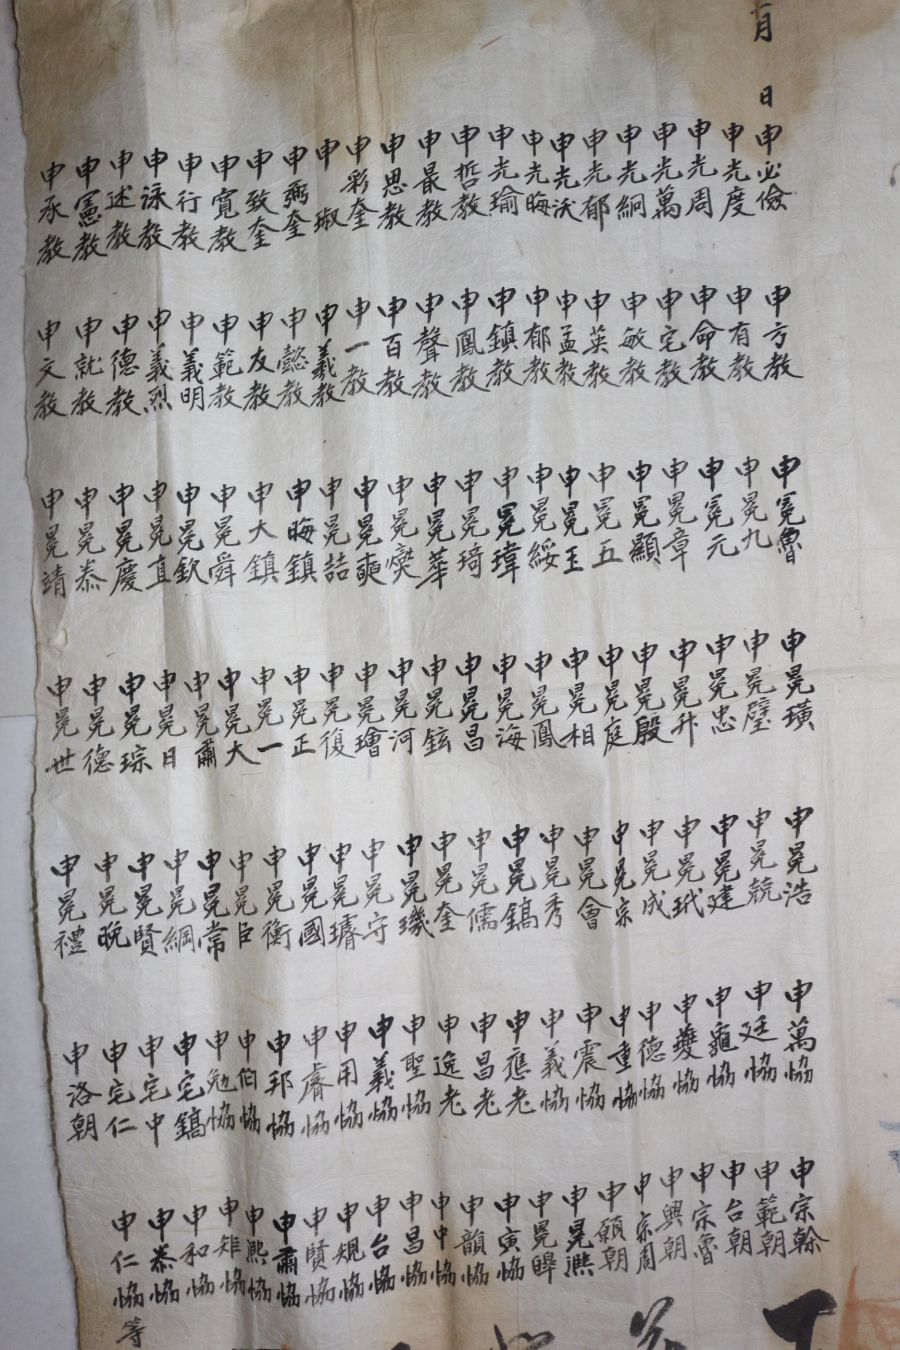 月 日
申必儉 申光度 申光周 申光萬 申光絅 申光郁 申光沃 申光晦 申光瑜 申哲教 申最教 申思教 申彩奎 申琡 申弼奎 申致奎 申寬教 申行教 申泳教 申述教 申憲教 申承教
申方教 申有教 申命教 申宅教 申敏教 申英教 申孟教 申郁教 申鎮教 申鳳教 申聲教 申百教 申一教 申義教 申懿教 申友教 申範教 申義明 申義烈 申德教 申就教 申文教
申冕魯 申冕九 申冕元 申冕章 申冕顯 申冕五 申冕玉 申冕綏 申冕瑋 申冕琦 申冕華 申冕燮 申冕奭 申冕喆 申晦鎮 申大鎮 申冕舜 申冕欽 申冕直 申冕慶 申冕泰 申冕靖
申冕璜 申冕璧 申冕忠 申冕升 申冕殷 申冕庭 申冕相 申冕鳳 申冕海 申冕昌 申冕鉉 申冕河 申冕璯 申冕復 申冕正 申冕一 申冕大 申冕肅 申冕日 申冕琮 申冕德 申冕世
申冕浩 申冕兢 申冕建 申冕玳 申冕成 申冕宗 申冕會 申冕秀 申冕鎬 申冕儒 申冕奎 申冕璣 申冕守 申冕璿 申冕國 申冕衡 申冕臣 申冕常 申冕綱 申冕賢 申冕晚 申冕禮
申萬協 申廷協 申龜協 申夔協 申德協 申重協 申震協 申義協 申應老 申昌老 申逸老 申聖協 申義協 申用協 申睿協 申邦協 申伯協 申勉協 申宅鎬 申宅中 申宅仁 申洛朝
申宗翰 申範朝 申台朝 申宗魯 申興朝 申宗周 申顧朝 申冕熙 申冕皥 申寅協 申韻協 申中協 申昌協 申台協 申規協 申賢協 申肅協 申熙協 申矩協 申和協 申恭協 申仁協 等